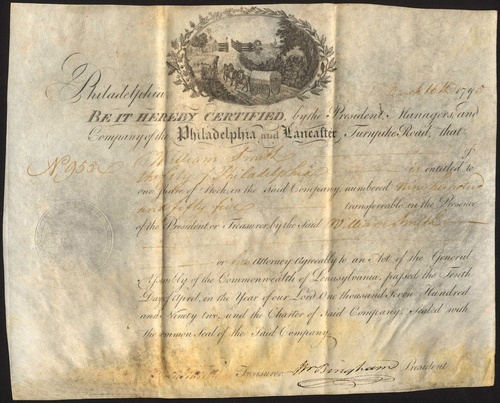 Philadelphia March 16th 1795
BE IT HEREBY CERTIFIED, by the President, Managers, and
Company of the Philadelphia and Lancaster Turnpike Road, that
William Smith of
No. 955 the City of Philadelphia is entitled to
one Share of Stock, in the Said Company, numbered Nine hundred
and fifty five transferrable in the Presence
of the President or Treasurer, by the Said William Smith
or his Attorney Agreeably to an Act of the General
Assembly of the Commonwealth of Pennsylvania, passed the Ninth
Day of April, in the Year of our Lord One thousand Seven Hundred
and Ninety two, and the Charter of Said Company, Sealed with
the common Seal of the Said Company.
Treasurer Wm Bingham President